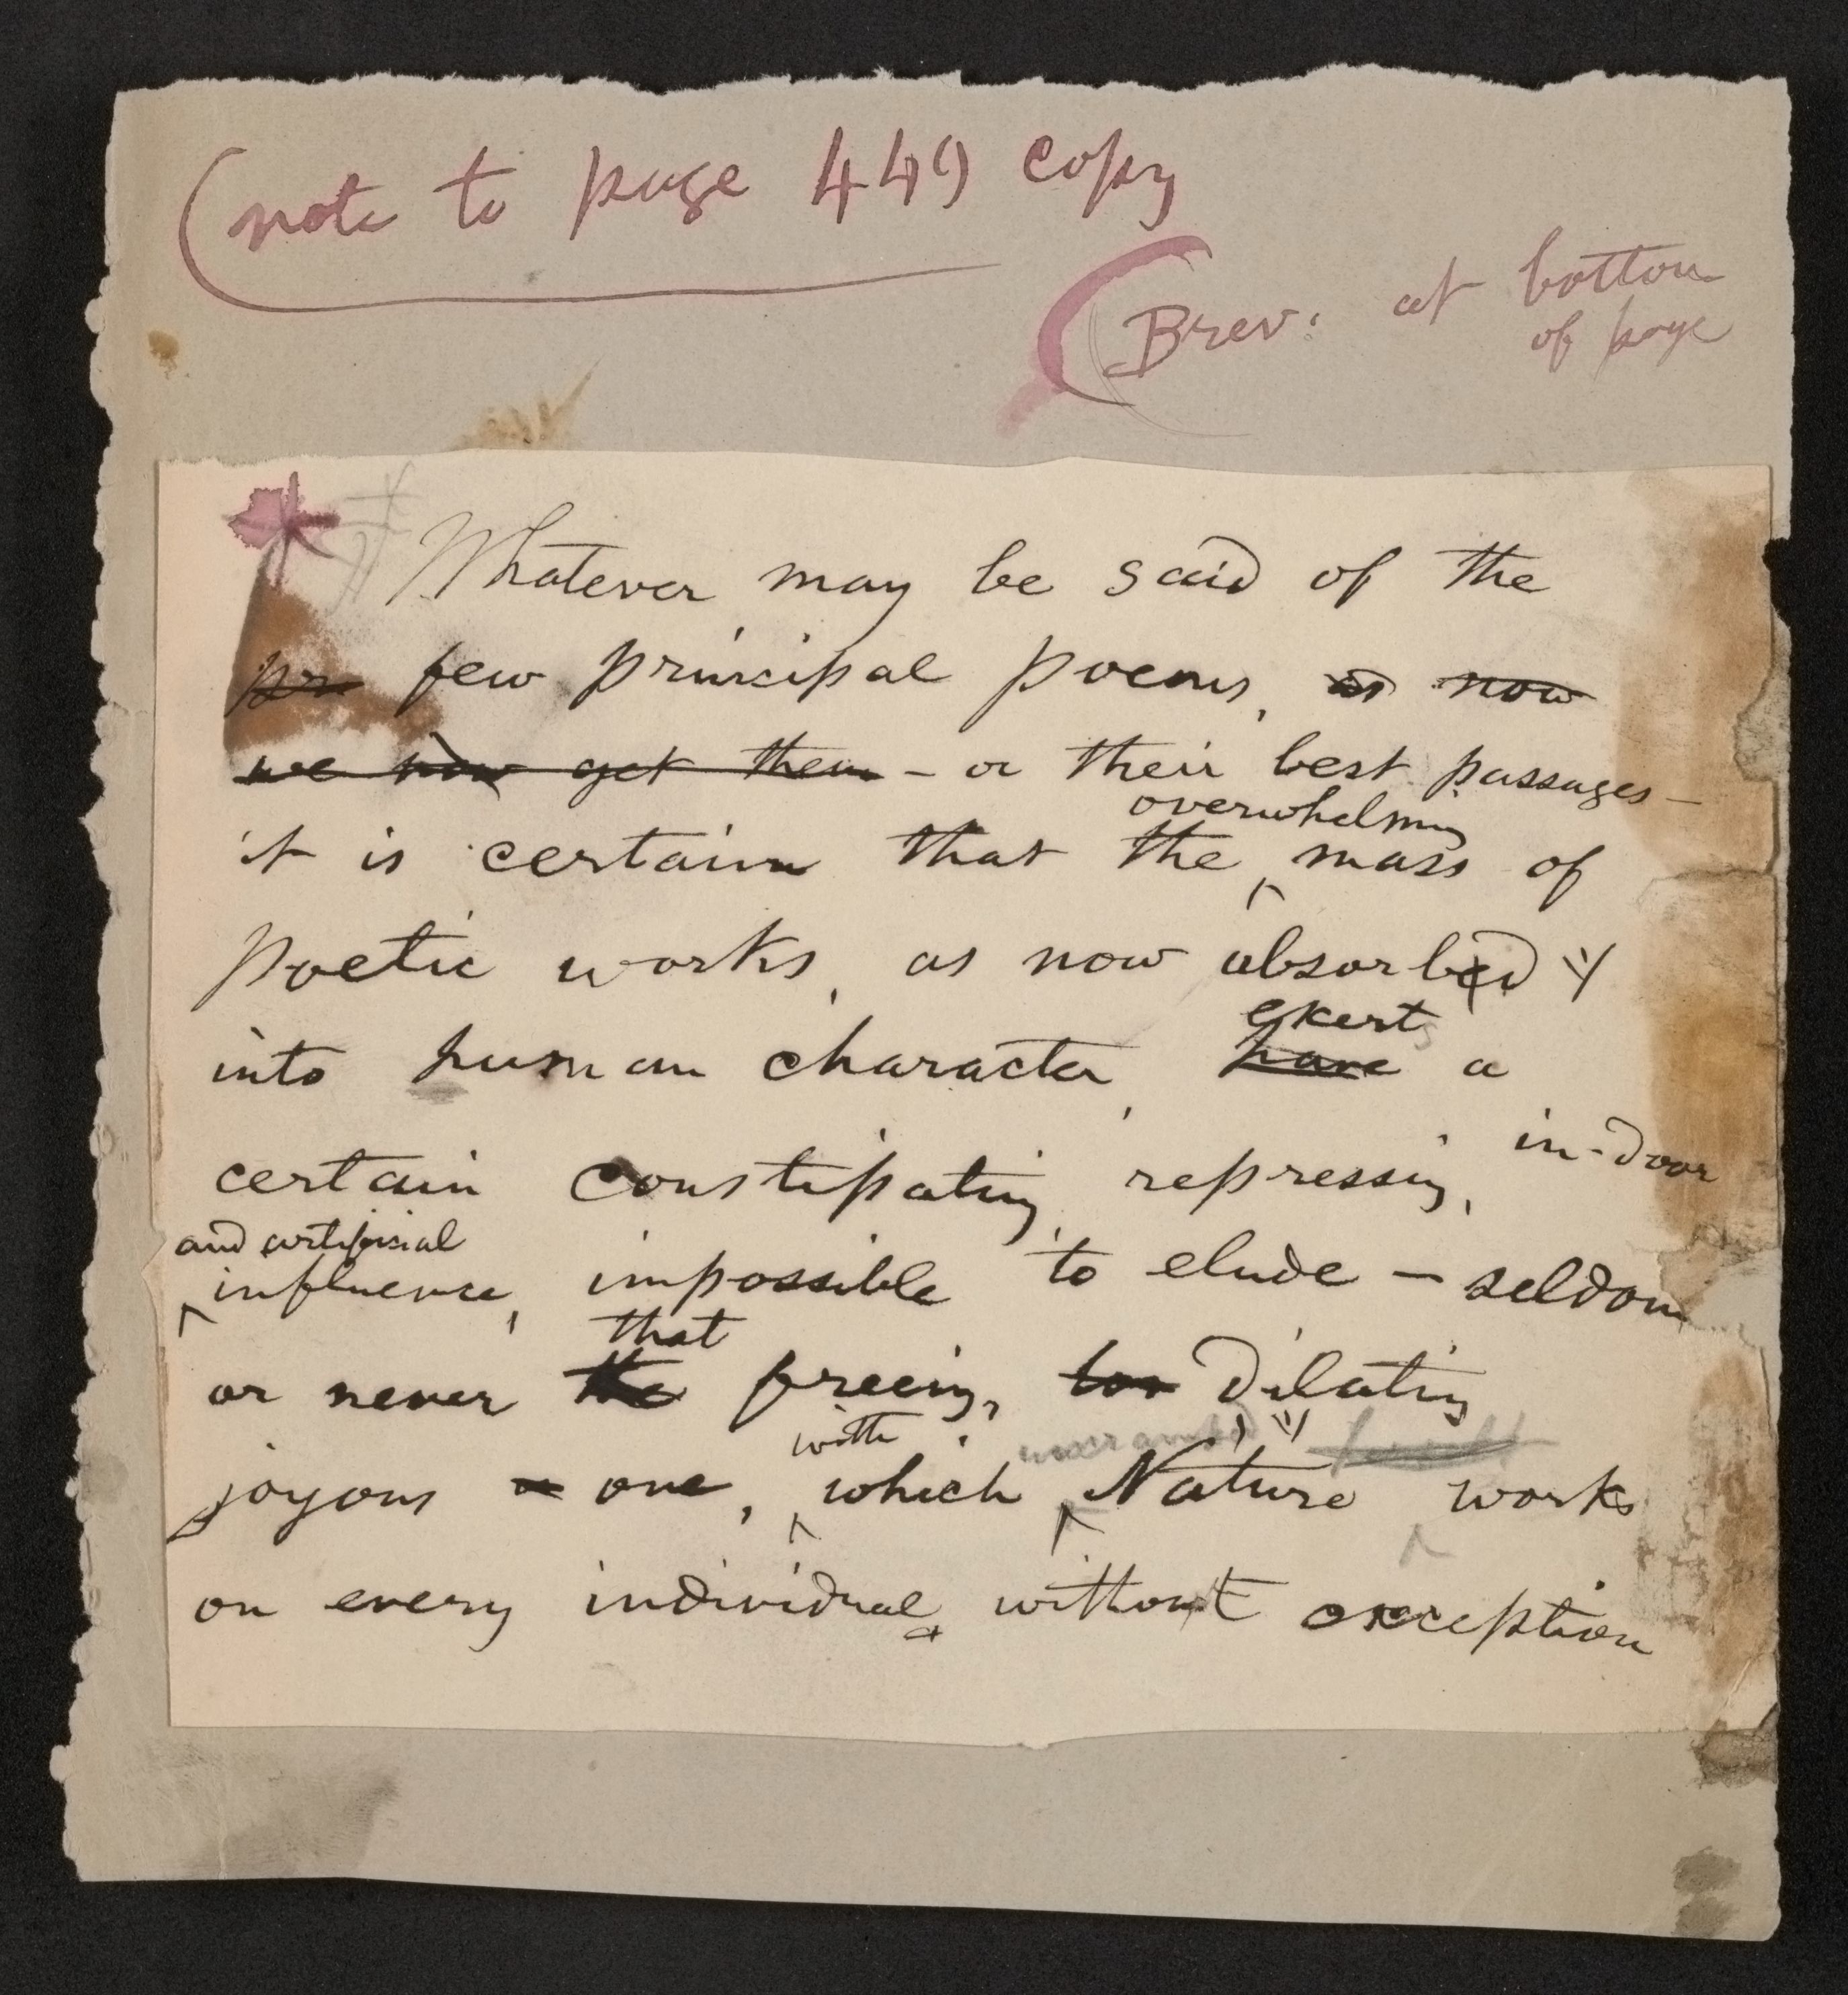 (note to page 449 copy
(Brev: at bottom
of page
Whatever may be said of the
pr few principal poems, as now
we now get them – or their best passages –
overwhelming
it is certain that the mass of
poetic works, as now absorbed
into human character, have a
exerts
certain constipating, repressing, in-door
and artificial
influence, impossible to elude – seldom
that
or never the freeing, dilating
with uncramped
joyous one, which Nature works
on every individual without exception